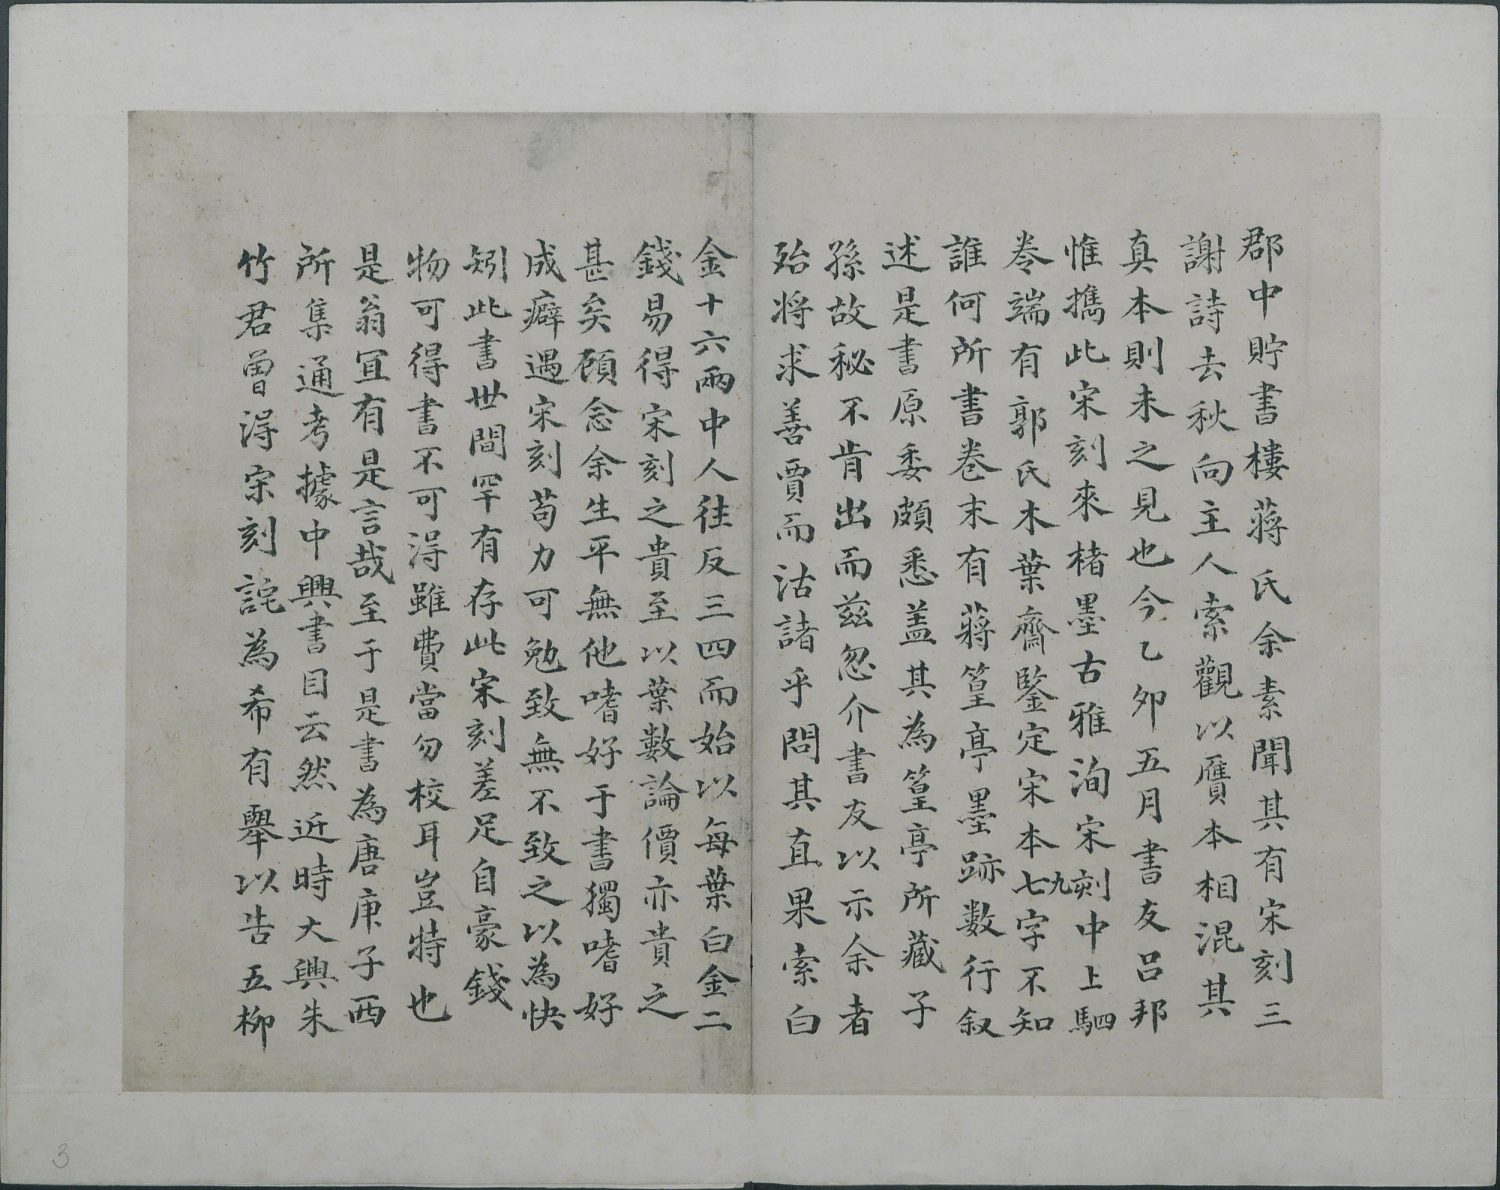 郡中貯書樓蔣氏余素聞其有宋刻三
謝詩去秋向主人索觀以贋本相混其
真本則未之見也今乙卯五月書友吕邦
惟攜此宋刻來楮墨古雅洵宋刻中上駟
卷端有郭氏木葉齋鑒定宋本七九字不知
誰何所書卷末有蔣篁亭墨跡数行叙
述是書原委頗悉盖其為篁亭所藏子
孫故秘不肯出而茲忽介書友以示余者
殆将求善賈而沽諸乎問其直果索白
金十六兩中人往反三四而始以每葉白金二
錢易得宋刻之貴至以葉數論價亦貴之
甚矣顧念余生平無他嗜好于書獨嗜好
成癖遇宋刻苟力可勉致無不致之以為快
矧此書世間罕有存此宋刻差足自豪錢
物可得書不可淂雖費當勿校耳豈特也
是翁宜有是言哉至于是書為唐庚子西
所集通考據中興書目云然近時大興朱
竹君曾淂宋刻詫為希有舉以告五柳